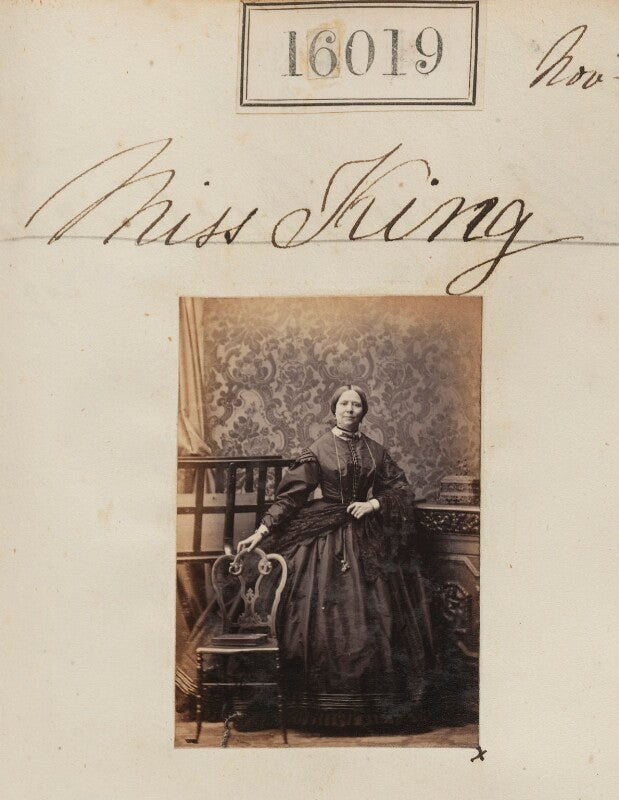 16019
Nov
Miss King
x